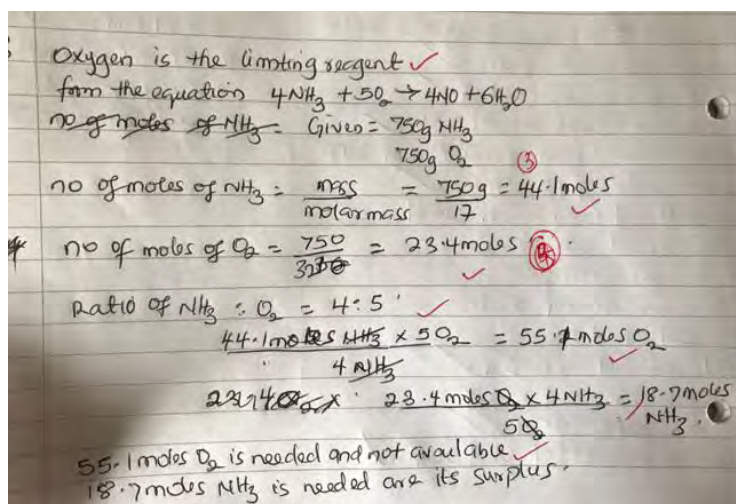 Oxygen is the limiting reagent ✓
from the equation 4NH₃ + 5O₂ → 4NO + 6H₂O
no of moles of NH₃ = Given = 750g NH₃
750g O₂ ③
no of moles of NH₃ = mass / molar mass = 750g / 17 = 44.1moles
no of moles of O₂ = 750 / 32 = 23.4moles
Ratio of NH₃ : O₂ = 4:5
44.1moles NH₃ × 5O₂ / 4 NH₃ = 55.1moles O₂
23.4moles O₂ × 4NH₃ / 5O₂ = 18.7moles NH₃.
55.1moles O₂ is needed and not available
18.7moles NH₃ is needed are its surplus.